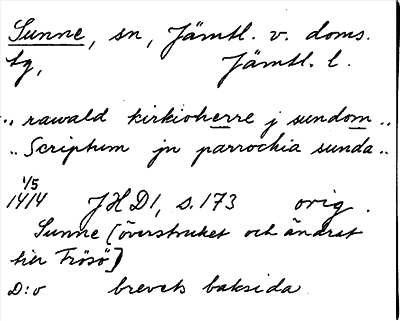 Sunne, sn, Jämtl. v. doms.
tg, Jämtl. l.
.. rawald kirkioherre j sundom ..
.. Scriptum jn parrochia sunda ..
1/5
1414 JHD1, s. 173 orig.
Sunne [överstruket och ändrat
till Frösö]
D:o brevets baksida